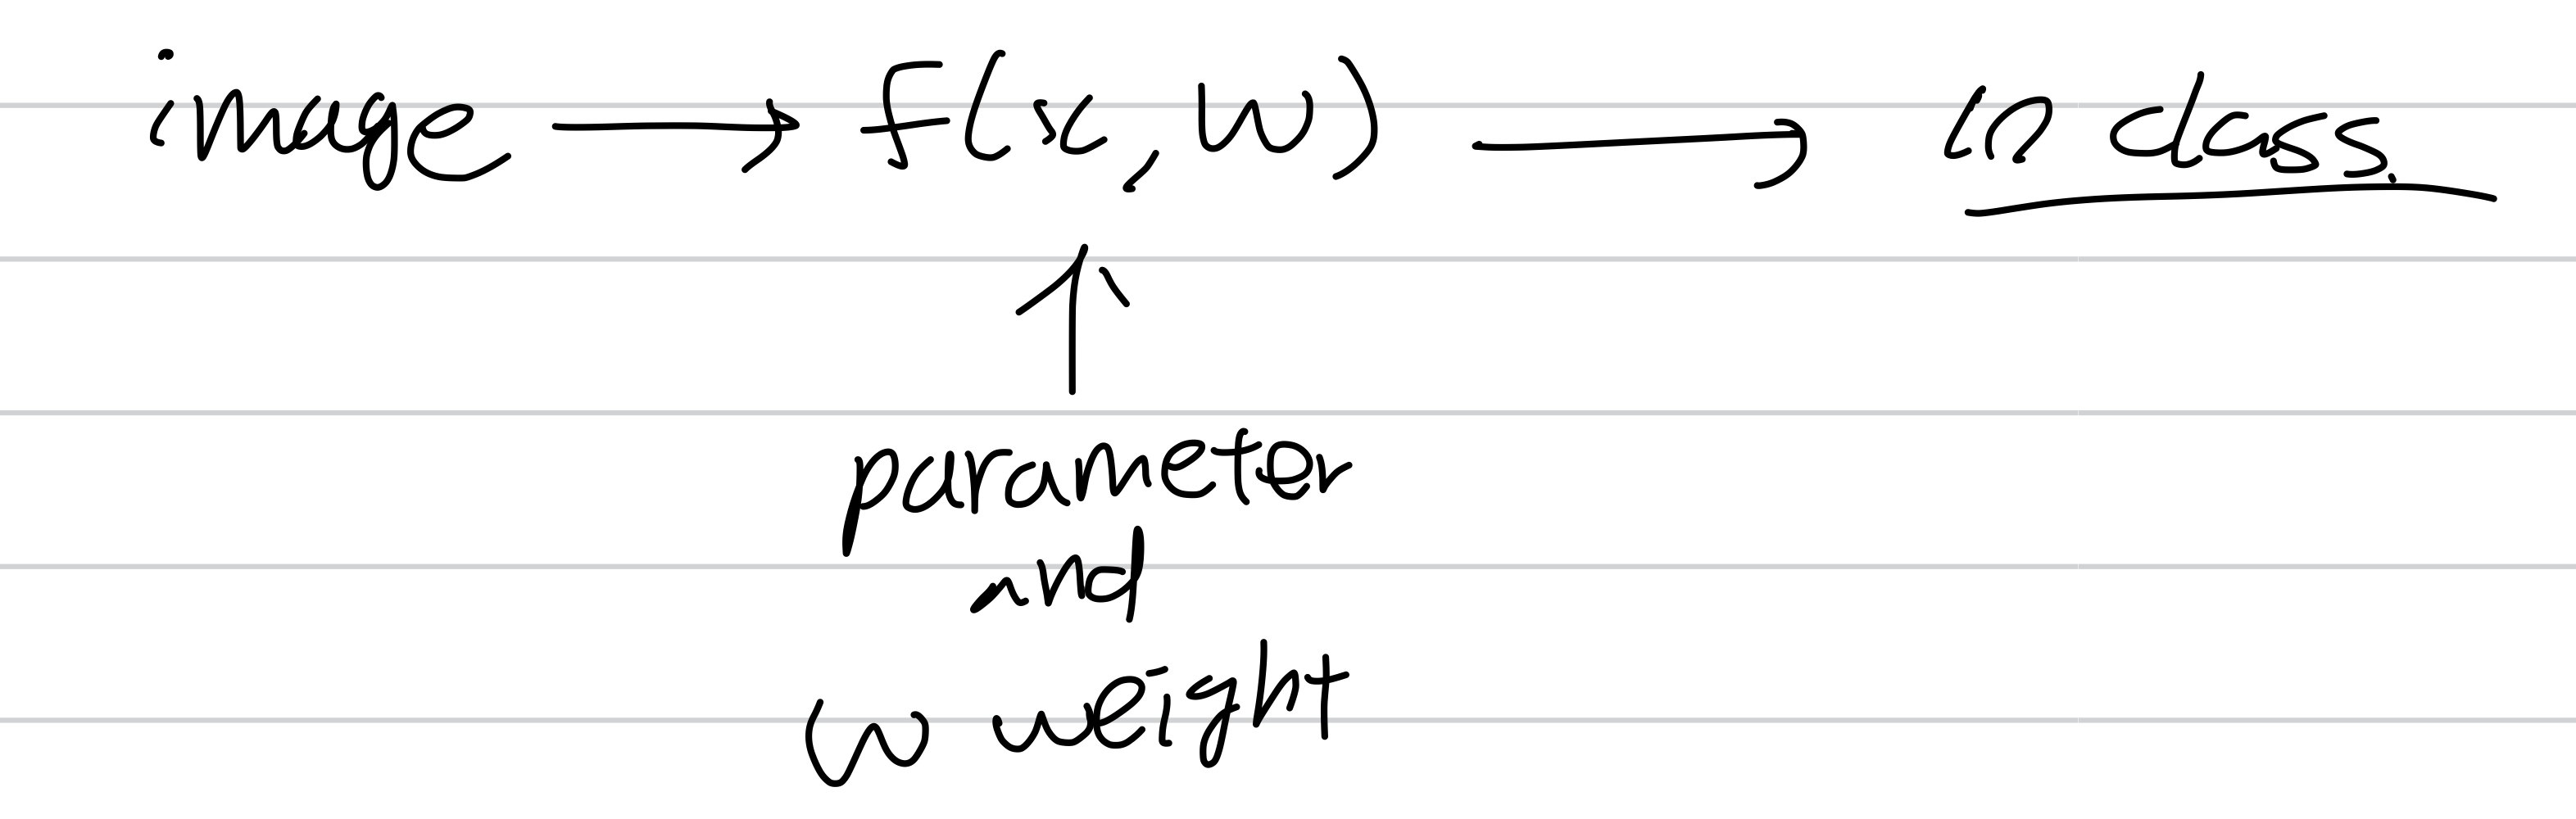 image → f(x, W) → in class
↑
parameter
and
w weight